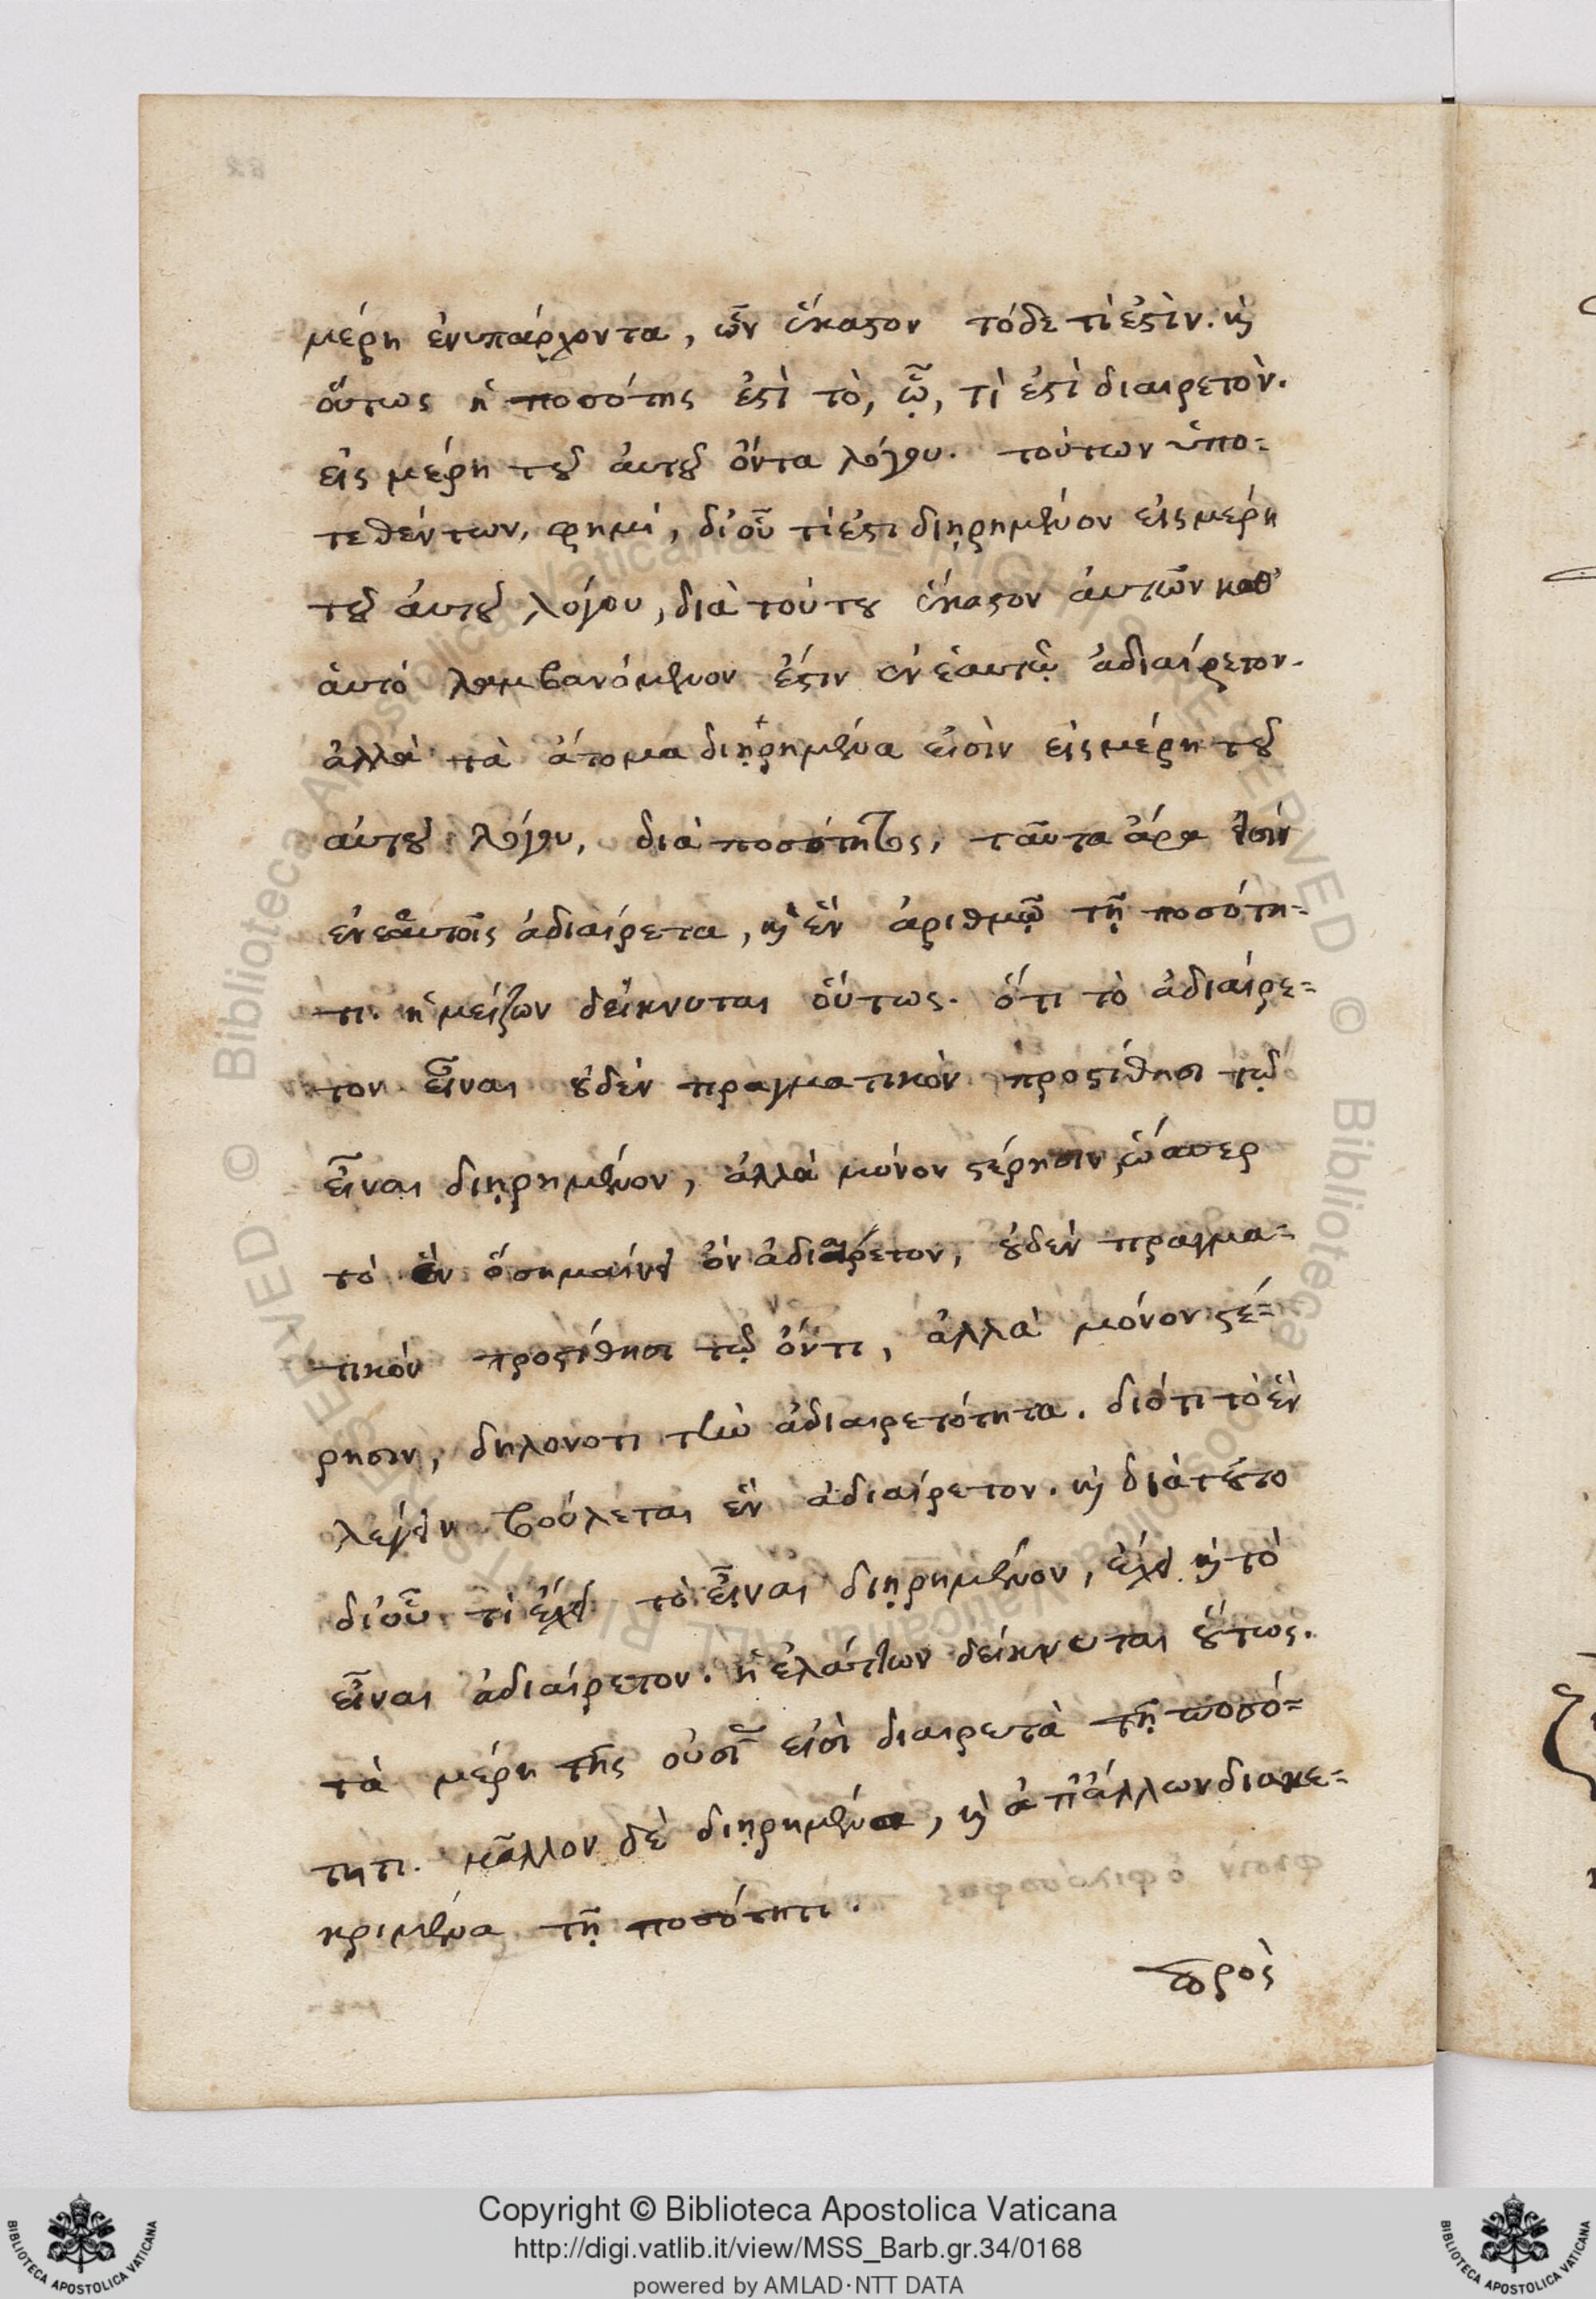 μέρη ἐνυπάρχοντα, ὧν ἕκαστον τόδε τὶ ἐστὶν. καὶ
οὕτως ἡ ποσότης ἐστὶ τὸ, ᾧ, τὶ ἐστὶ διαιρετὸν.
εἰς μέρη τοῦ αὐτοῦ ὄντα λόγου. τούτων ὑπο=
τεθέντων, φημί, δι' οὗ τὶ ἐστι διῃρημένον εἰς μέρη
τοῦ αὐτοῦ λόγου, διὰ τούτου ἕκαστον αὐτῶν καθ'
ἁυτό λαμβανόμενον ἔστιν ἐν ἑαυτῷ ἀδιαίρετον.
ἀλλὰ τὰ ἄτομα διῃρημένα εἰσὶν εἰς μέρη τοῦ
αὐτοῦ λόγου, διὰ ποσότητος, ταῦτα ἄρα εἰσὶν
ἐν ἑαυτοῖς ἀδιαίρετα, καὶ ἓν ἀριθμῷ τῇ ποσότη=
τι. ἡ μείζων δείκνυται οὕτως. ὅτι τὸ ἀδιαίρε=
τον εἶναι οὐδὲν πραγματικὸν προστίθησι τῷ
εἶναι διῃρημένον, ἀλλὰ μόνον στέρησιν, ὥσπερ
τὸ ἓν ὃ σημαίνει ὂν ἀδιαίρετον, οὐδὲν πραγμα=
τικὸν προστίθησι τῷ ὄντι, ἀλλὰ μόνον στέ=
ρησιν, δηλονότι τὴν ἀδιαιρετότητα. διότι τὸ ἓν
λέγειν βούλεται ἓν ἀδιαίρετον. καὶ διὰ τοῦτο
δι' οὗ τὶ ἔχει τὸ εἶναι διῃρημένον, ἔχει καὶ τὸ
εἶναι ἀδιαίρετον. ἡ ἐλάττων δείκνυται οὕτως.
τὰ μέρη τῆς οὐσίας εἰσὶ διαιρετὰ τῇ ποσό=
τητι. μᾶλλον δὲ διῃρημένα, καὶ ἀπ' ἄλλων διακε=
κριμένα τῇ ποσότητι.
πρὸς
Copyright © Biblioteca Apostolica Vaticana
http://digi.vatlib.it/view/MSS_Barb.gr.34/0168
powered by AMLAD·NTT DATA